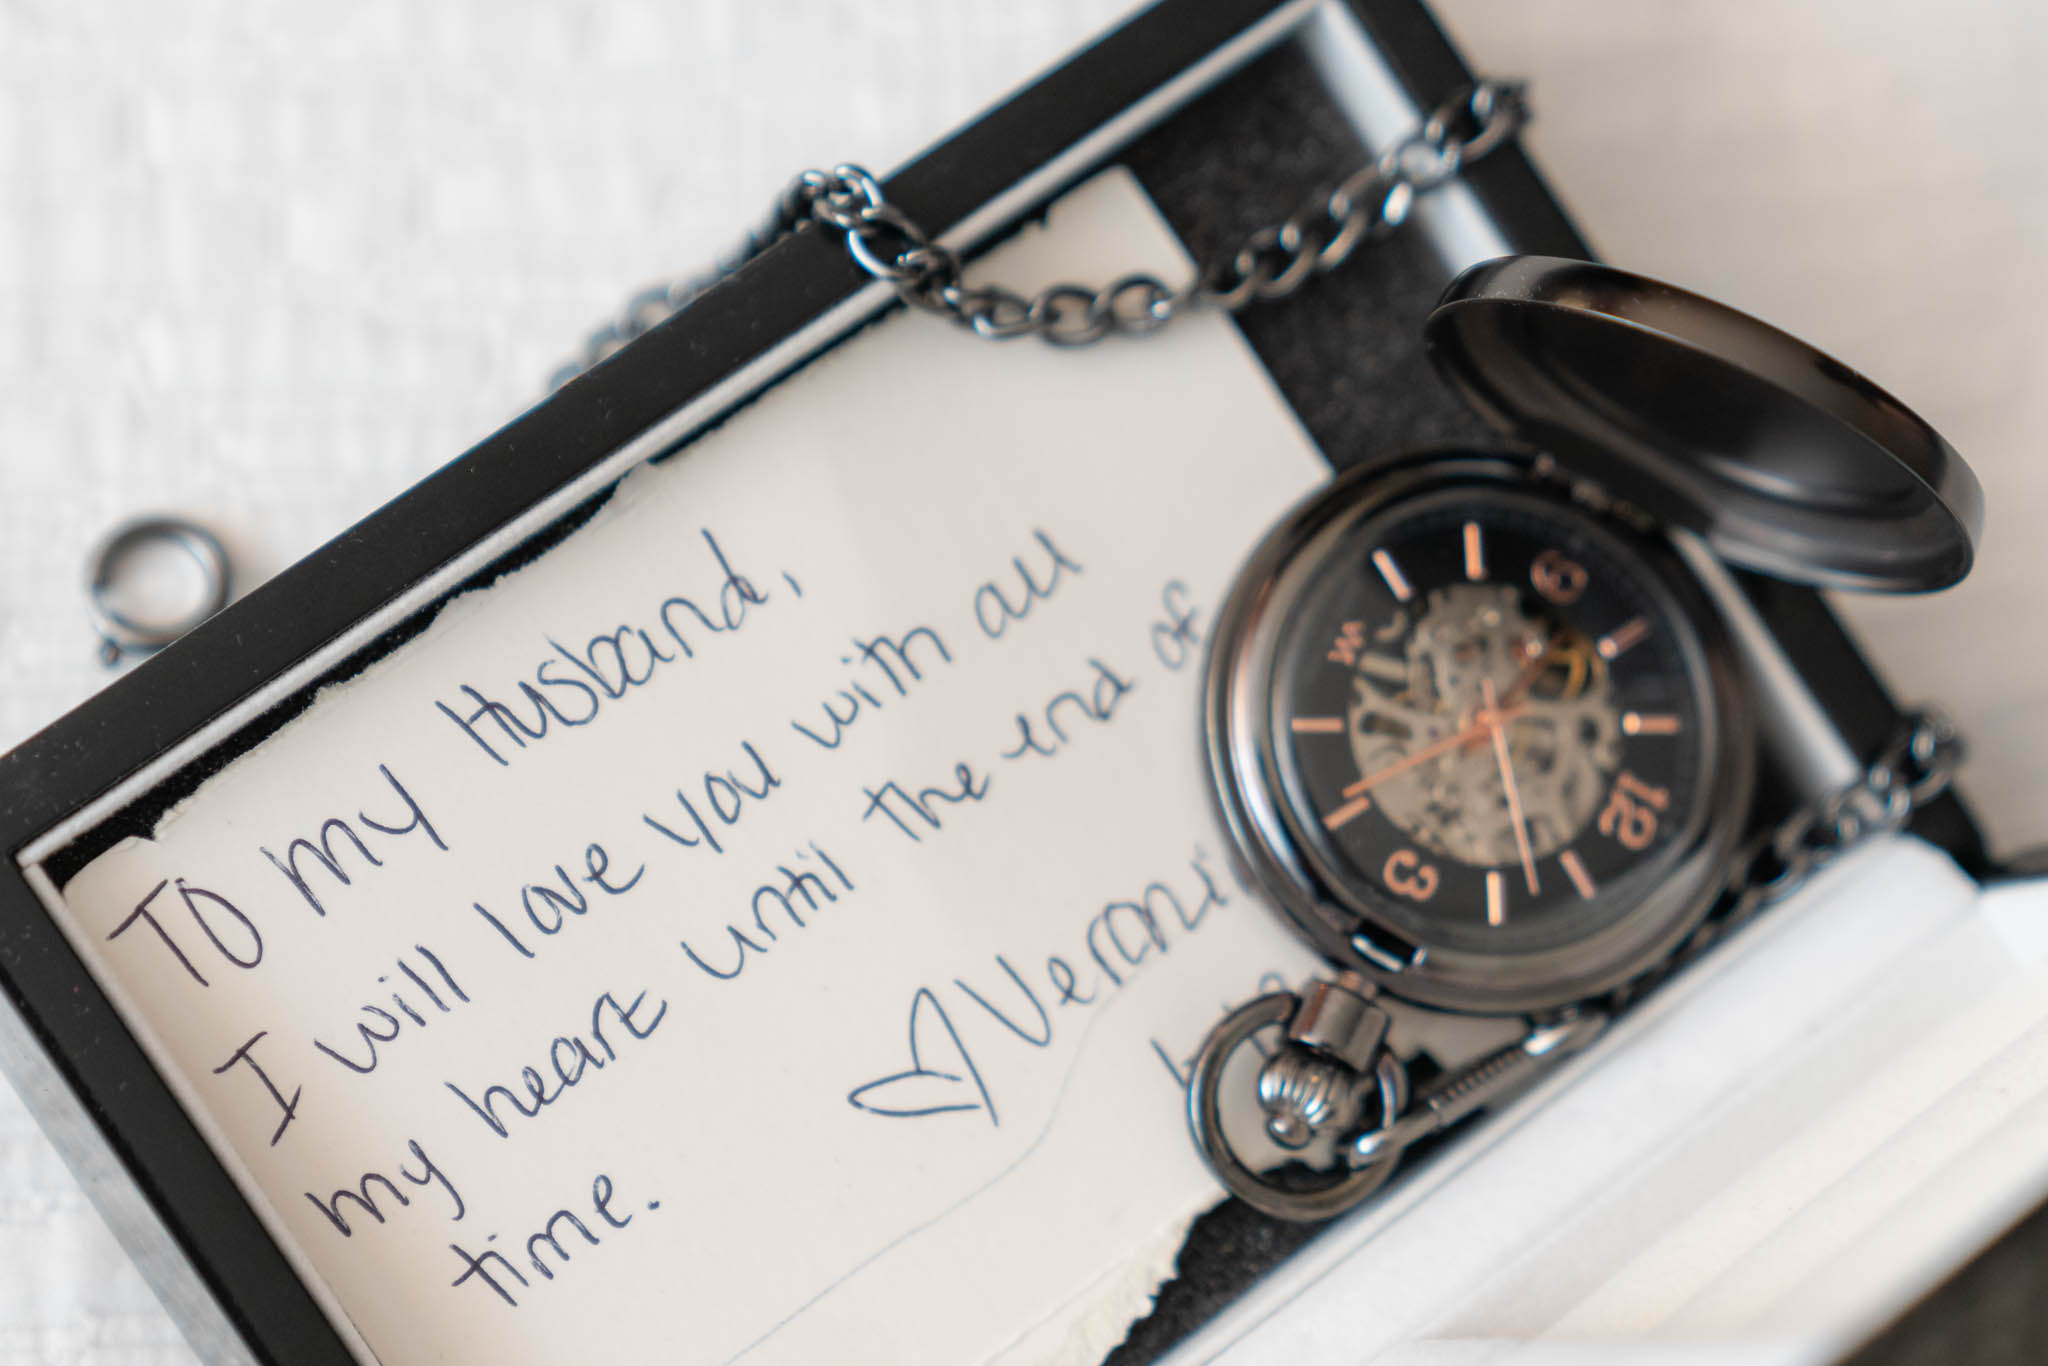 To my Husband,
I will love you with all
my heart until the end of
time.
12
3
9